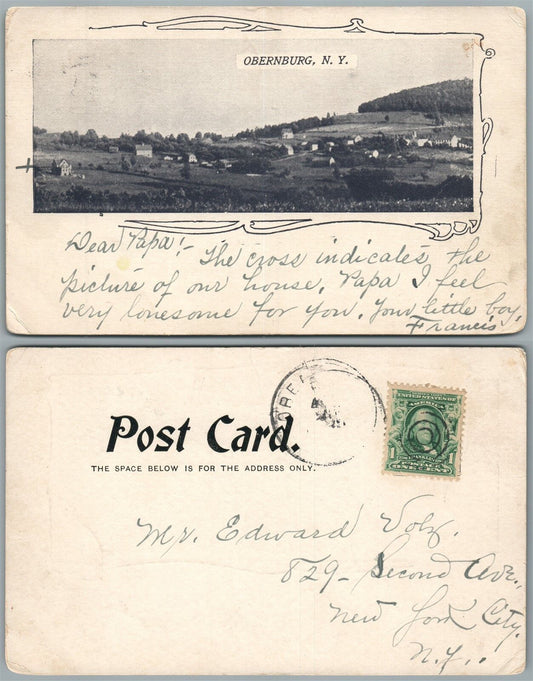 OBERNBURG, N. Y.
Dear Papa!- The cross indicates the
picture of our house. Papa I feel
very lonesome for you. Your little boy,
Francis
Post Card.
THE SPACE BELOW IS FOR THE ADDRESS ONLY.
UNITED STATES OF
AMERICA
1 1
POSTAGE
ONE CENT
Mr. Edward Volz.
829- Second Ave.,
New York City.
N.Y..